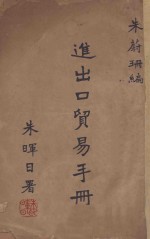 朱蔚珊編
進出口貿易手冊
朱暉日署